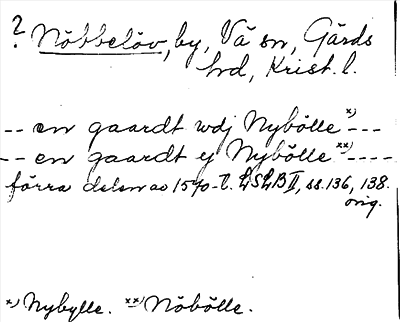 ? Nöbbelöv, by, Vä sn, Gärds
hrd, Krist. l.
-- en gaardt wdj Nybölle x) ---
-- en gaardt y Nybölle xx) ----
förra delen av 1570-t. LSLB II, ss. 136, 138.
orig.
x) Nybylle. xx) Nöbölle.